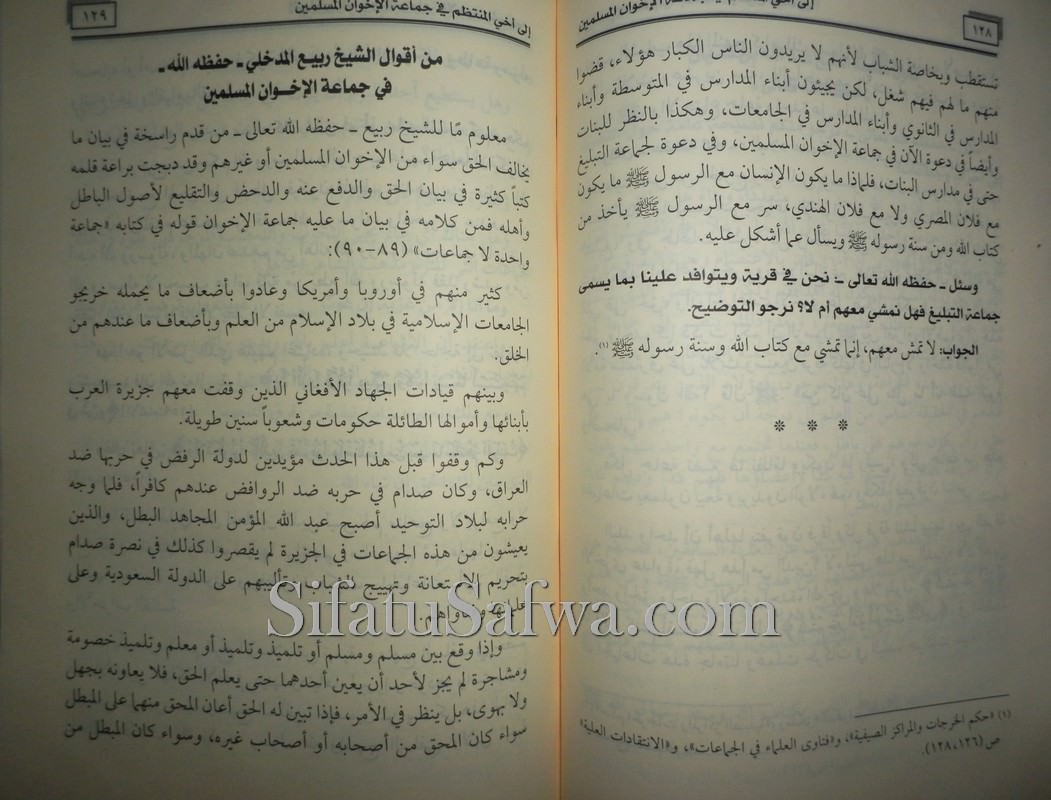 ١٢٨
إلى أخي المنتظم في جماعة الإخوان المسلمين
تستقطب وبخاصة الشباب لأنهم لا يريدون الناس الكبار هؤلاء، قضوا
منهم ما لهم فيهم شغل، لكن يجيئون أبناء المدارس في المتوسطة وأبناء
المدارس في الثانوي وأبناء المدارس في الجامعات، وهكذا بالنظر للبنات
وأيضاً في دعوة الآن في جماعة الإخوان المسلمين، وفي دعوة لجماعة التبليغ
حتى في مدارس البنات، فلماذا ما يكون الإنسان مع الرسول ﷺ ما يكون
مع فلان المصري ولا مع فلان الهندي، سر مع الرسول ﷺ يأخذ من
كتاب الله ومن سنة رسوله ﷺ ويسأل عما أشكل عليه.
وسئل ـ حفظه الله تعالى ـ: نحن في قرية ويتوافد علينا بما يسمى
جماعة التبليغ فهل نمشي معهم أم لا؟ نرجو التوضيح.
الجواب: لا تمش معهم، إنما تمشي مع كتاب الله وسنة رسوله ﷺ (١).
* * *
(١) «حكم الخرجات والمراكز الصيفية»، و«فتاوى العلماء في الجماعات»، و«الانتقادات العلية»
ص (١٢٦، ١٢٨).
إلى أخي المنتظم في جماعة الإخوان المسلمين
١٢٩
من أقوال الشيخ ربيع المدخلي ـ حفظه الله ـ
في جماعة الإخوان المسلمين
معلوم مَّا للشيخ ربيع ـ حفظه الله تعالى ـ من قدم راسخة في بيان ما
يخالف الحق سواء من الإخوان المسلمين أو غيرهم وقد دبجت براعة قلمه
كتباً كثيرة في بيان الحق والدفع عنه والدحض والتقليع لأصول الباطل
وأهله فمن كلامه في بيان ما عليه جماعة الإخوان قوله في كتابه «جماعة
واحدة لا جماعات» (٨٩-٩٠):
كثير منهم في أوروبا وأمريكا وعادوا بأضعاف ما يحمله خريجو
الجامعات الإسلامية في بلاد الإسلام من العلم وبأضعاف ما عندهم من
الخلق.
وبينهم قيادات الجهاد الأفغاني الذين وقفت معهم جزيرة العرب
بأبنائها وأموالها الطائلة حكومات وشعوباً سنين طويلة.
وكم وقفوا قبل هذا الحدث مؤيدين لدولة الرفض في حربها ضد
العراق، وكان صدام في حربه ضد الروافض عندهم كافراً، فلما وجه
حرابه لبلاد التوحيد أصبح عبد الله المؤمن المجاهد البطل، والذين
يعيشون من هذه الجماعات في الجزيرة لم يقصروا كذلك في نصرة صدام
بتحريم الاستعانة وتهييج الشباب وتأليبهم على الدولة السعودية وعلى
علمائها وفتاواهم.
وإذا وقع بين مسلم ومسلم أو تلميذ وتلميذ أو معلم وتلميذ خصومة
ومشاجرة لم يجز لأحد أن يعين أحدهما حتى يعلم الحق، فلا يعاونه بجهل
ولا بهوى، بل ينظر في الأمر، فإذا تبين له الحق أعان المحق منهما على المبطل
سواء كان المحق من أصحابه أو أصحاب غيره، وسواء كان المبطل من
SifatuSafwa.com